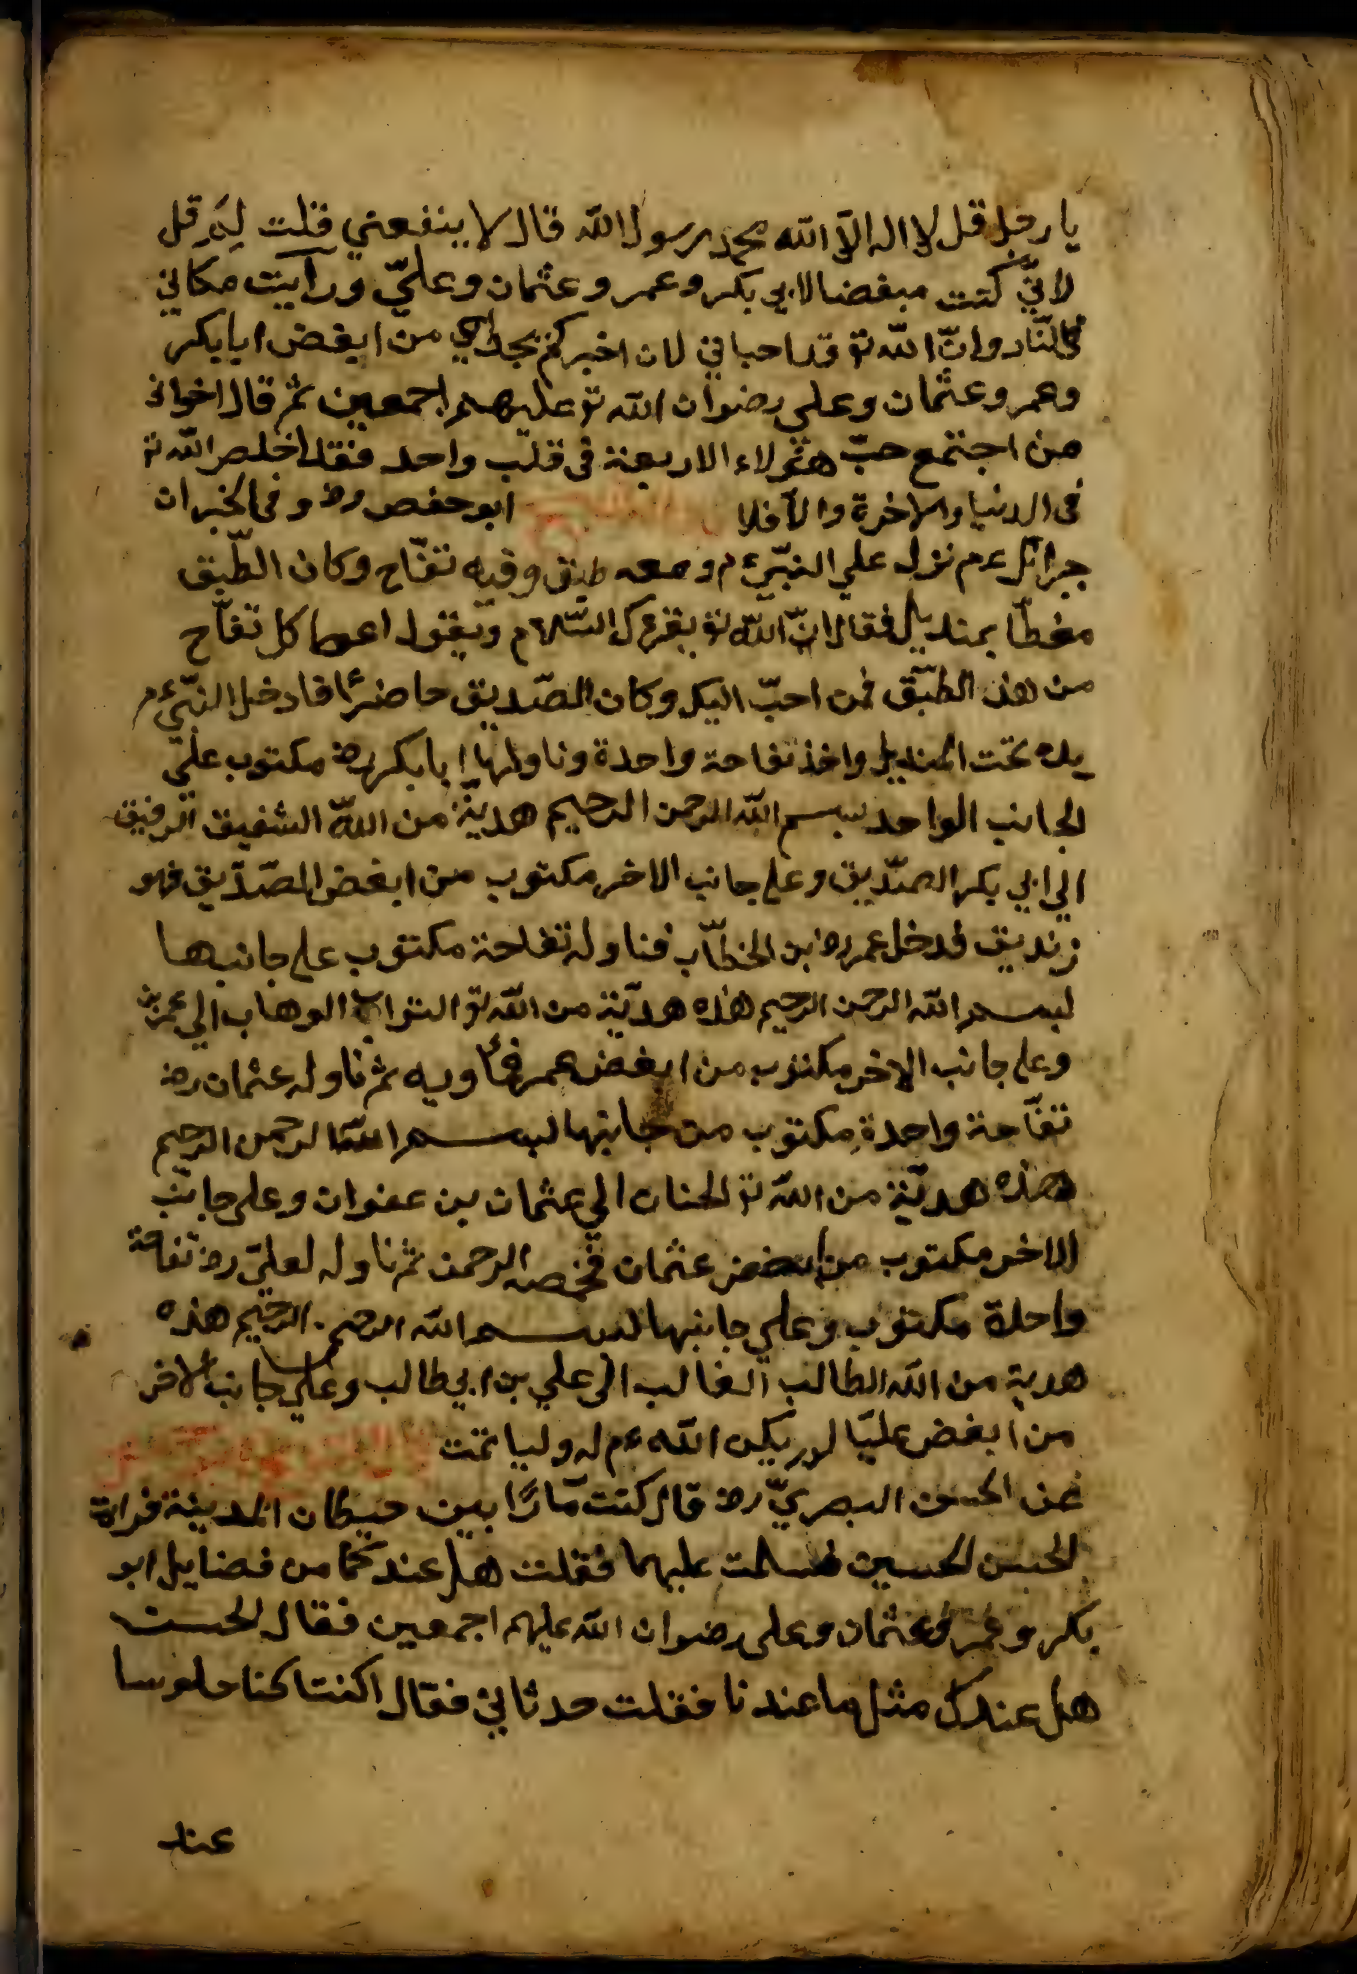 يا رجل قل لا اله الّا الله محمد رسول الله قال لا ينفعني قلت لِمَ قل
لانّي كنت مبغضا لابي بكر وعمر وعثمان وعليّ ورأيت مكاني
في النّار وانّ الله تع قد احياني لان اخبركم بحال من ابغض ابا بكر
وعمر وعثمان وعلي رضوان الله تع عليهم اجمعين ثم قال اخواني
من اجتمع حبّ هؤلاء الاربعة في قلب واحد فقد اخلص الله تع
في الدنيا والاخرة والّا فلا ابو حفص رض وفي الخبر ان
جبرائل عم نزل علي النبيّ عم ومعه طبق وفيه تفّاح وكان الطّبق
مغطّا بمنديل فقال انّ الله تع يقرءك السّلام ويقول اعط كل تفّاح
من هذ الطبّق لمن احبّ اليك وكان الصّديق حاضرًا فادخل النبّي عم
يده تحت المنديل واخذ تفاحة واحدة وناولها ابا بكر رض مكتوب علي
الجانب الواحد بسم الله الرحمن الرحيم هديّة من اللّه الشفيق الرفيق
الي ابي بكر الصّدّيق وعلى جانب الاخر مكتوب من ابغض الصّدّيق فهو
زنديق فدخل عمر رض بن الخطّاب فناوله تفاحة مكتوب على جانبها
بسم الله الرحمن الرحيم هذه هديّة من الله تع التواب الوهاب الي عمر بن
وعلى جانب الاخر مكتوب من ابغض عمر فمأويه ثم ناوله عثمان رض
تفّاحة واحدةِ مكتوب من جانبها بسم الله الرحمن الرحيم
هذه هديّة من الله تع الحنان الي عثمان بن عفوان وعلى جانب
الاخر مكتوب من ابغض عثمان فخصمه الرحمن ثم ناوله لعليّ رض تفاحة
واحدة مكتوب وعلي جانبها بسم الله الرحمن الرحيم هذه
هدية من الله الطالب الغالب الى علي بن ابي طالب وعلى جانب الاخر
من ابغض عليّا لم يكن الله عم له وليا تمت
عن الحسن البصريّ رض قال كنت مارًا بين حيطان المدينة فرايت
الحسن الحسين فسلمت عليهما فقلت هل عندكما من فضايل ابو
بكر وعمر وعثمان وعلى رضوان الله عليهم اجمعين فقال الحسن
هل عندك مثل ما عندنا فقلت حدثاني فقال كنا جلوسا
عند